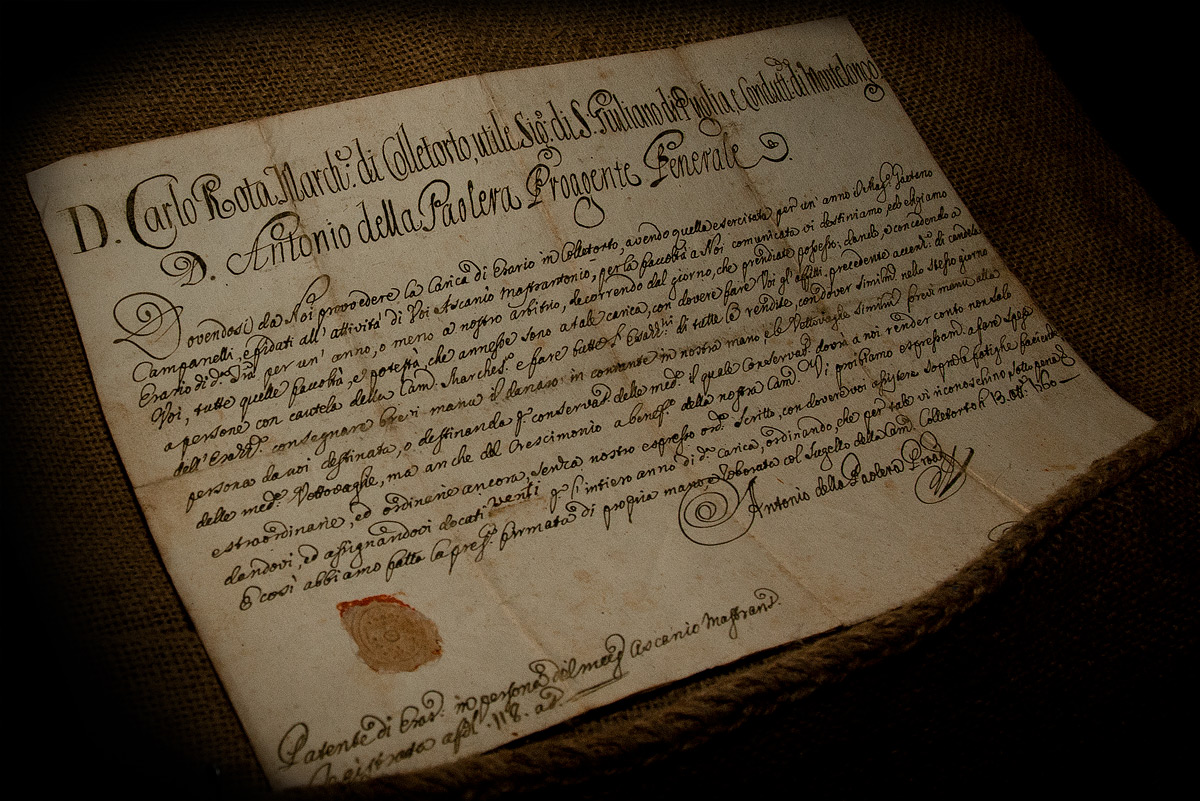 D. Carlo Rota March:e di Colletorto, utile Sig:e di S. Giuliano di Puglia, e Condutt:e di Montelongo
D. Antonio della Paolera Proagente Generale.
Dovendosi da Noi provvedere la Carica di Erario in Colletorto, avendo quella esercitata per un' anno il Mag:co Gaetano
Campanelli, e fidati all' attività di Voi Ascanio Massrantonio, per la facoltà a Noi comunicata vi destiniamo, ed eligiamo
Erario di d:a per un' anno, o meno a nostro arbitrio, decorrendo dal giorno, che prendiate possesso; dando, e concedendo a
Voi, tutte quelle facoltà, e potestà, che annesse sono a tale carica, con dovere fare Voi gl' affitti, precedente accens:e di candela
a persone con cautela della Cam:a Marches:e e fare tutte l' Esazz:ni di tutte le rendite, con dover similm:e nello stesso giorno
dell' Esazz:e consegnare brevi manu il denaro in contante in nostra mano, e le Vettovaglie simil:e brevi manu alla
persona da noi destinata, o destinanda p: conservaz:e delle med:e il quale Conservat:e dovrà a noi render conto non solo
delle med:e Vettovaglie, ma anche del Crescimonio a benef:o della nostra Cam:a Vi proibiamo espressam:e a fare spese
estraordinarie, ed ordinarie ancora, senza nostro espresso ord:e Scritto, con dovere voi assistere sopra fatighe facien
dandovi, ed assignandovi docati venti p: l' intiero anno di d:a carica, ordinando, che per tale vi riconoschino sotto pena
E così abbiamo fatta la pres:e firmata di propria mano e roborata col Suggello della Cam:a Colletorto li 13. ott:e 1760
Antonio della Paolera Proag:e
Patente di Erar:o in persona del mag:co Ascanio Massrant:
Registrata a fol: 118. a